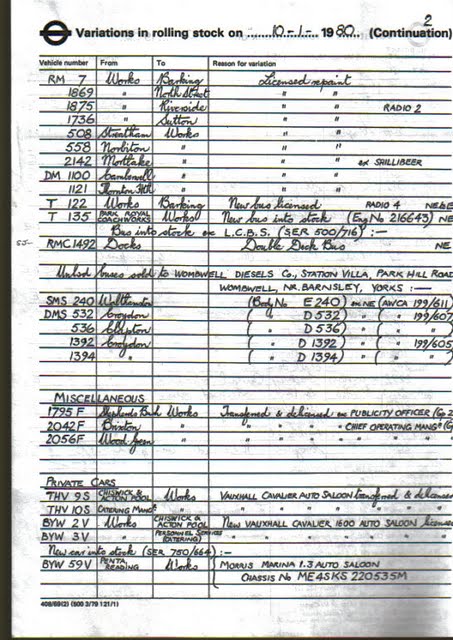 2
Variations in rolling stock on ......10-1-.. 1980.. (Continuation)
Vehicle number From To Reason for variation
RM 7 Works Barking Licensed repaint
1869 " North Street " "
1875 " Riverside " " RADIO 2
1736 " Sutton " "
508 Streatham Works " "
558 Norbiton " " "
2142 Mortlake " " " ex SHILLIBEER
DM 1100 Camberwell " " "
1121 Thornton Hth " " "
T 122 Works Barking New bus licensed RADIO 4 NE6E
T 135 PARK ROYAL COACHWORKS Works New bus into stock (Eng No 216643) NE
Bus into stock ex L.C.B.S. (SER 500/716) :—
RMC1492 Docks Double Deck Bus NE
Unlsd buses sold to WOMBWELL DIESELS Co, STATION VILLA, PARK HILL ROAD
WOMBWELL, NR. BARNSLEY, YORKS :—
SMS 240 Walthamstow (Body No E240) ex NE (AWCA 199/611)
DMS 532 Croydon ( " D532) " " ( " 199/607
536 Clapton ( " D536) " " ( " "
1392 Croydon ( " D1392) " " ( " 199/605
1394 " ( " D1394) " " ( " "
MISCELLANEOUS
1795F Shepherds Bush Works Transferred & delicensed ex PUBLICITY OFFICER (Gp 2
2042F Brixton " " " " " CHIEF OPERATING MANGR (G
2056F Wood Green " " " " " " " "
PRIVATE CARS
THV 9S CHISWICK & ACTON POOL Works VAUXHALL CAVALIER AUTO SALOON transferred & delicensed
THV 10S CATERING MANGR " " " " " " "
BYW 2V Works CHISWICK & ACTON POOL New VAUXHALL CAVALIER 1600 AUTO SALOON licensed
BYW 3V " PERSONNEL SERVICES (CATERING) " " " " " "
New car into stock (SER 750/664) :—
BYW 59V PENTA, READING Works MORRIS MARINA 1.3 AUTO SALOON
CHASSIS No ME4SKS 220535M
408/69(2) (500 3/79 121/1)